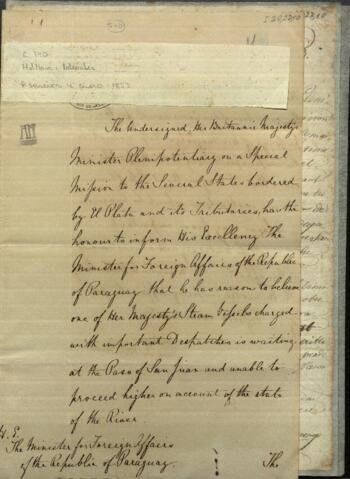 The Undersigned, Her Britannic Majesty's
Minister Plenipotentiary on a Special
Mission to the Several States bordered
by El Plata and its Tributaries, has the
honour to inform His Excellency The
Minister for Foreign Affairs of the Republic
of Paraguay that he has reason to believe
one of Her Majesty's Steam Vessels charged
with important Despatches is waiting
at the Paso of San Juan and unable to
proceed higher on account of the state
of the River
H. E.
The Minister for Foreign Affairs
of the Republic of Paraguay.
The